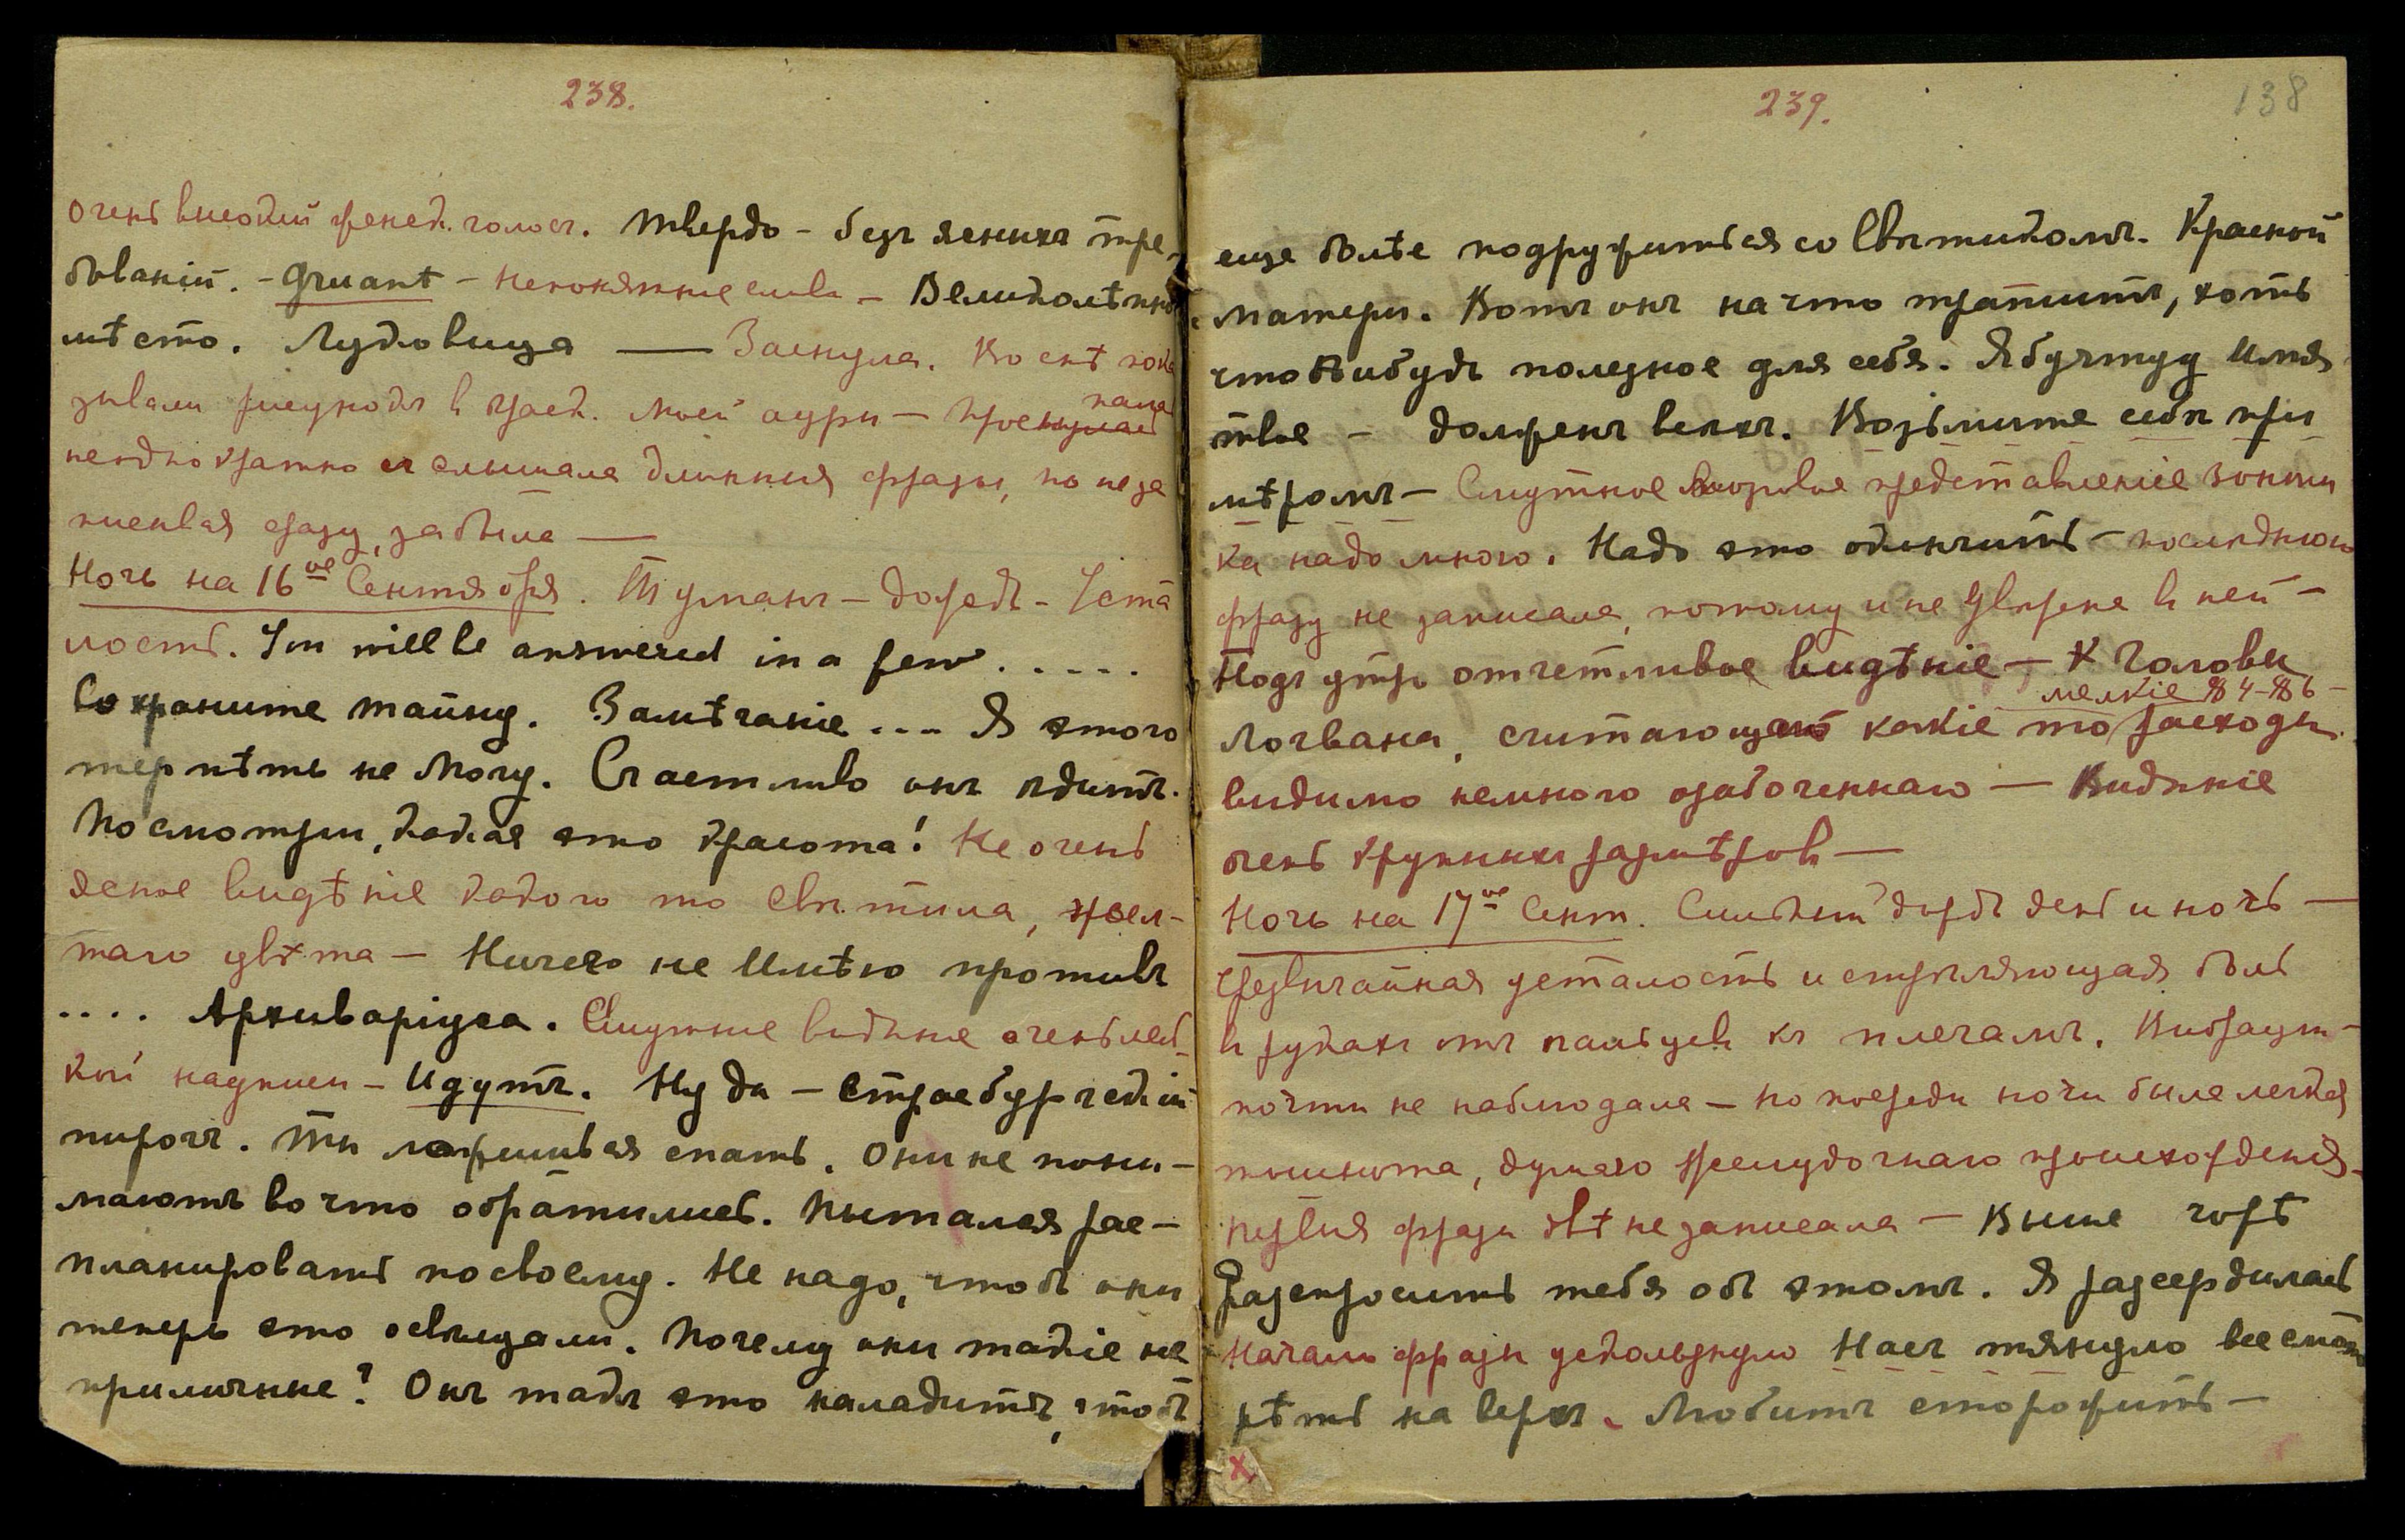 238.
очень высокий женск. голосъ. Твердо – безъ ясныхъ тре-
бованій. – Gruant – непонятные слова – Великолѣпно
мѣсто. Лудовица — Заснула. Во снѣ пока
зывали рисунокъ в краск. моей ауры –
неоднократно слышала длинныя фразы, но не за
писывая сразу, забыла —
Ночь на 16ое Сентября. Туманъ – дождь – Уста
лость. You will be answered in a few . . . . .
Сохраните тайну. Замѣчаніе . . . . Я этого
терпѣть не могу. Счастливо онъ ѣдитъ.
Посмотри, какая это красота! Не очень
ясное видѣніе какого то свѣтила, жел-
таго цвѣта — Ничего не имѣю противъ
. . . . Архиваріуса. Смутные видѣніе очень мел-
кой надписи – Идутъ. Ну да – Страсбургскій
пирогъ. Ты ложишься спать. Они не пони-
маютъ во что обратились. Пытался рас-
планировать по своему. Не надо, чтобъ они
теперь это освѣщали. Почему они такіе не
приличные? Онъ такъ это наладитъ, чтобъ
239.
138
еще болѣе подружиться со Свѣтикомъ. Красной
матери. Вотъ онъ на что тратитъ, хоть
что нибудь полезное для себя. Я бучтуд Имя
твое – долженъ всѣхъ. Возьмите себѣ при
мѣромъ – Смутное представленіе зонти
ка надо мною. Надо это окончить – послѣднюю
фразу не записала, потому и не увѣрена в ней –
Подъ утро отчетливое видѣніе — головы
мелкіе 84-86 –
Логвана, считающаго какіе то расходы.
видимо немного озабоченнаго — Видѣніе
очень крупныхъ размѣров —
Ночь на 17ое Сент. Сильный дождь день и ночь —
Чрезвычайная усталость и стрѣляющая боль
в рукахъ отъ пальцев къ плечамъ. Вибраціи
почти не наблюдала – но посреди ночи была легкая
тошнота, думаю желудочнаго происхожденія –
первыя фразы двѣ не записала – Выше горъ
Разспросить тебя объ этомъ. Я разсердилась
Начало фразы ускользнуло Насъ тянуло все смот
рѣть на верхъ. Любитъ сторожить —
х